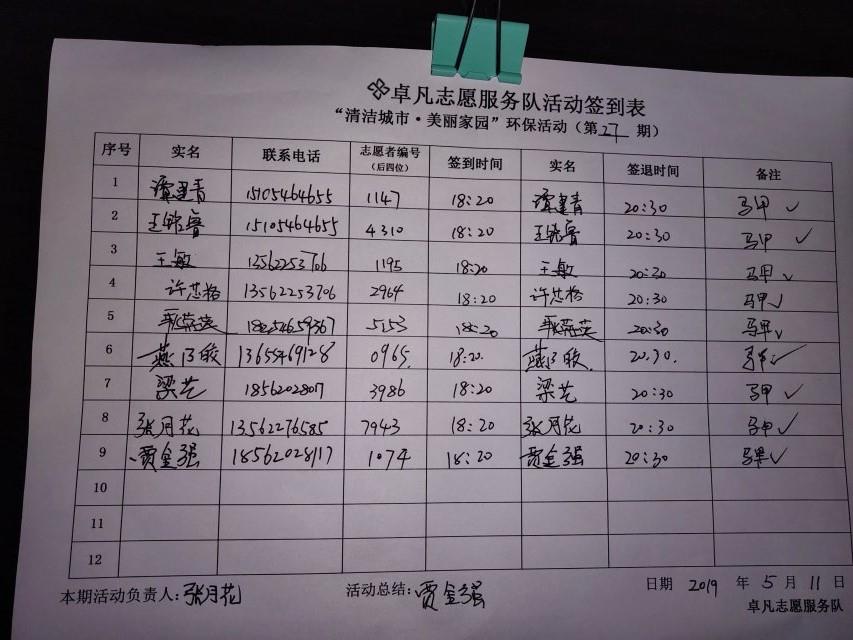 卓凡志愿服务队活动签到表
“清洁城市·美丽家园”环保活动（第27期）
序号 实名 联系电话 志愿者编号（后四位） 签到时间 实名 签退时间 备注
1 谭建青 15105464655 1147 18:20 谭建青 20:30 马甲 ✓
2 王铭睿 15105464655 4310 18:20 王铭睿 20:30 马甲 ✓
3 王敏 13562253706 1195 18:20 王敏 20:30 马甲 ✓
4 许芯格 13562253706 2964 18:20 许芯格 20:30 马甲 ✓
5 18254659367 5153 18:20 20:30 马甲 ✓
6 燕 13655469128 0965 18:20. 燕 20:30. 马甲 ✓
7 梁艺 1856202807 3986 18:20 梁艺 20:30 马甲 ✓
8 张月花 13562276585 7943 18:20 张月花 20:30 马甲 ✓
9 贾金强 18562028117 1074 18:20 贾金强 20:30 马甲 ✓
10
11
12
本期活动负责人:张月花 活动总结:贾金强 日期 2019 年 5 月 11 日
卓凡志愿服务队